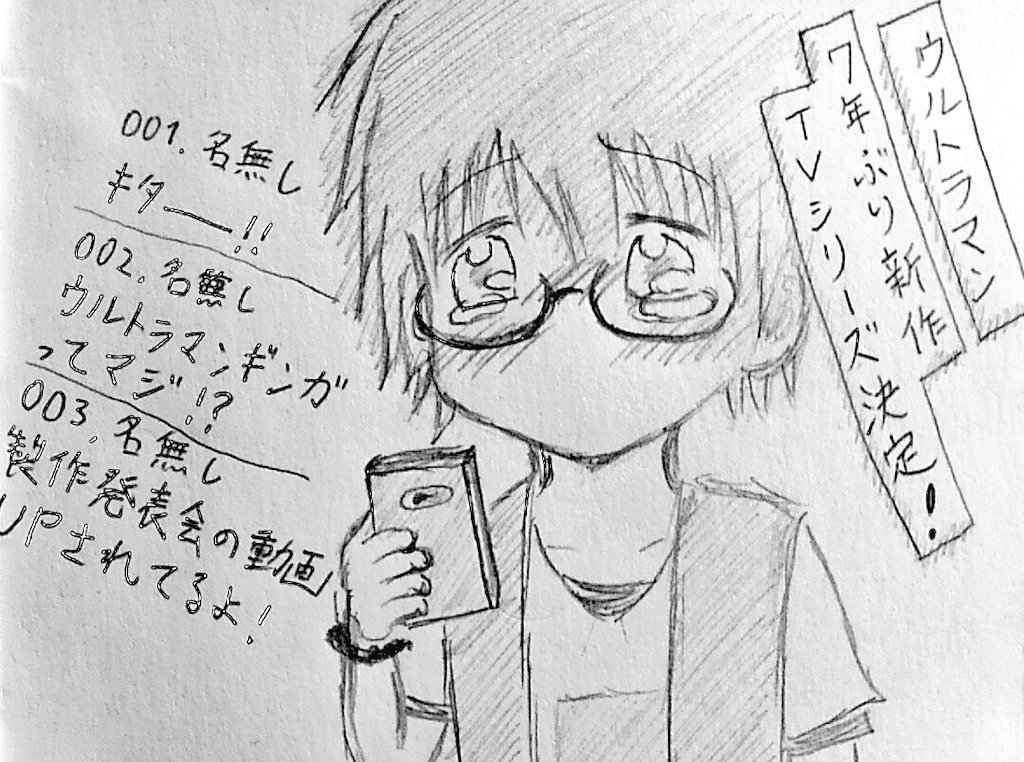 ウルトラマン
7年ぶり新作
TVシリーズ決定!
001. 名無し
キター!!
002. 名無し
ウルトラマンギンガ
ってマジ!?
003. 名無し
製作発表会の動画
UPされてるよ!